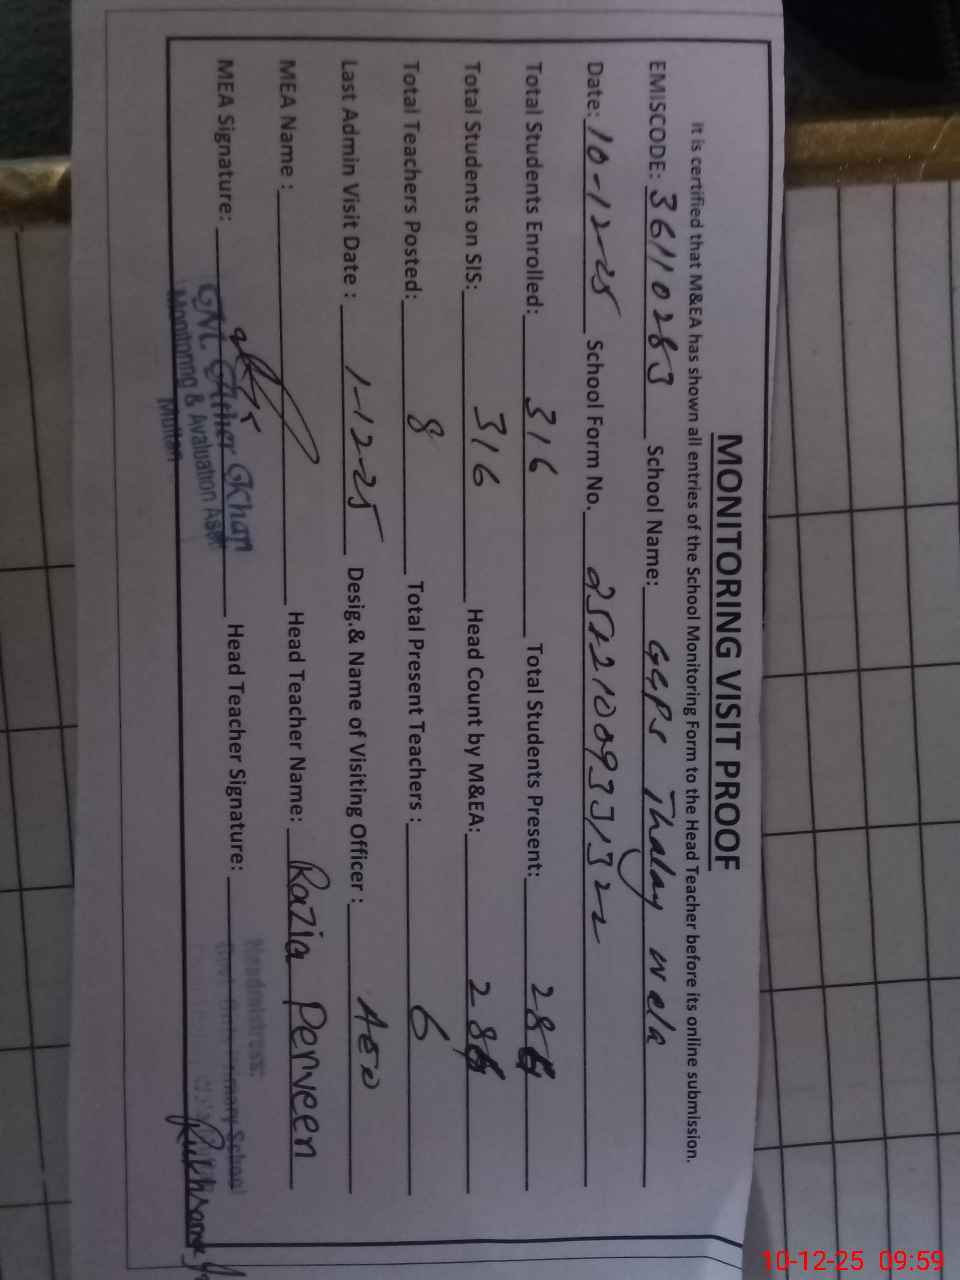 MONITORING VISIT PROOF
It is certified that M&EA has shown all entries of the School Monitoring Form to the Head Teacher before its online submission.
EMISCODE: 36110283 School Name: GGPS Thalay wala
Date: 10-12-25 School Form No.
Total Students Enrolled: 316 Total Students Present:
Total Students on SIS: 316 Head Count by M&EA:
Total Teachers Posted: 8 Total Present Teachers : 6
Last Admin Visit Date : 1-12-25 Desig.& Name of Visiting Officer : AEO
MEA Name : Head Teacher Name: Razia Perveen
MEA Signature: Head Teacher Signature:
Khan
Monitoring & Avaluation
Multan
Headmistress.
School
10-12-25 09:59